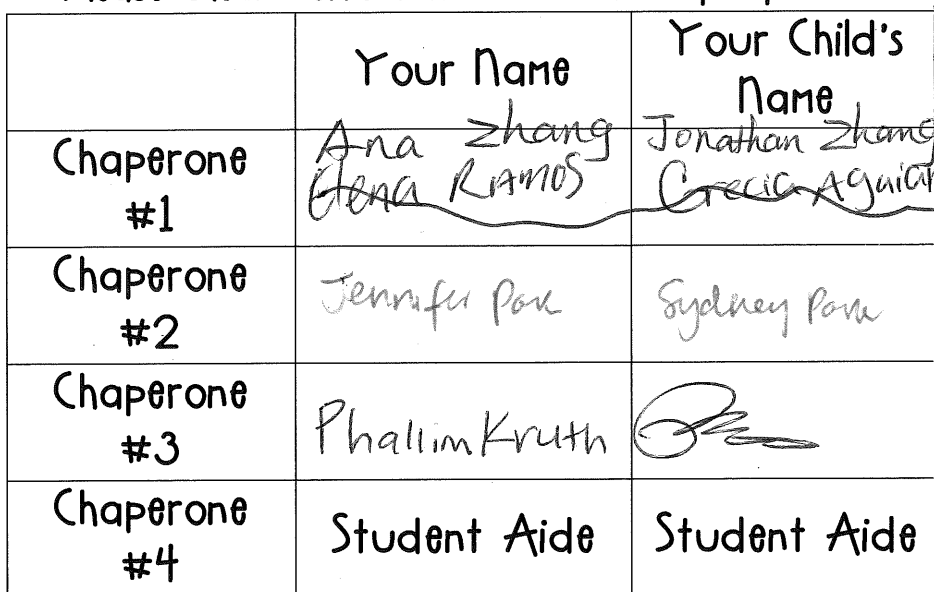 Your Name
Your Child's
Name
Chaperone
#1
Ana Zhang
Jonathan Zhang
Elena Ramos
Grecia Aguiar
Chaperone
#2
Jennifer Park
Sydney Park
Chaperone
#3
Phallim Kruth
Chaperone
#4
Student Aide
Student Aide